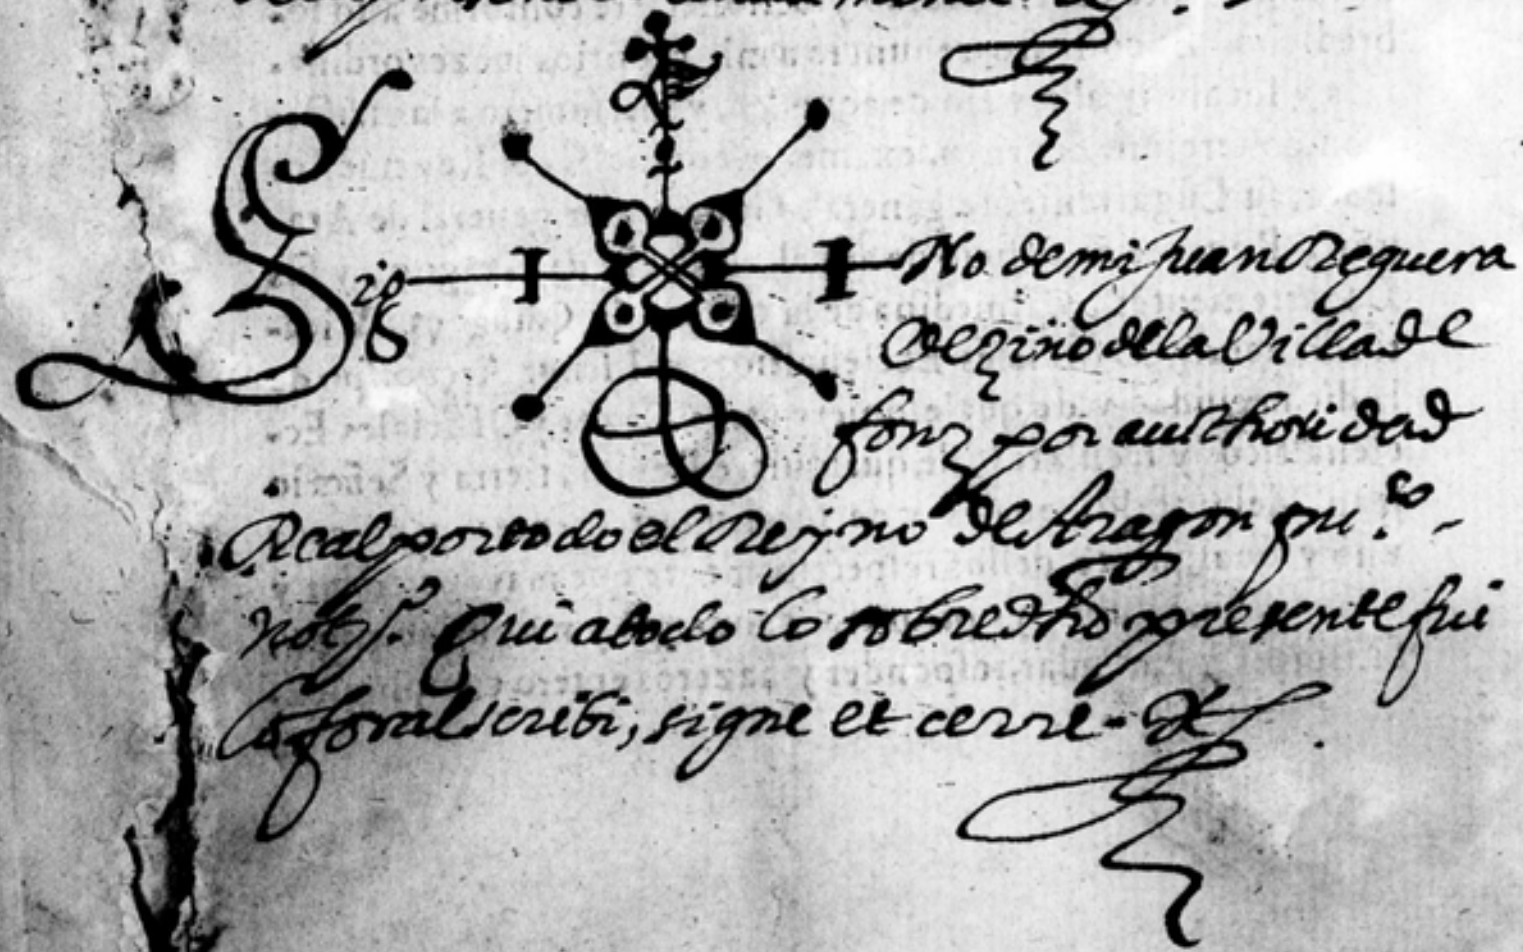 Sig No de mi Juan Reguera
Vezino de la Villa de
fonz por authoridad
Real por todo el Reyno de Aragon pu.co
not.o Qui a todo lo sobredho presente fui
Lo foral scribi, signe et cerre.